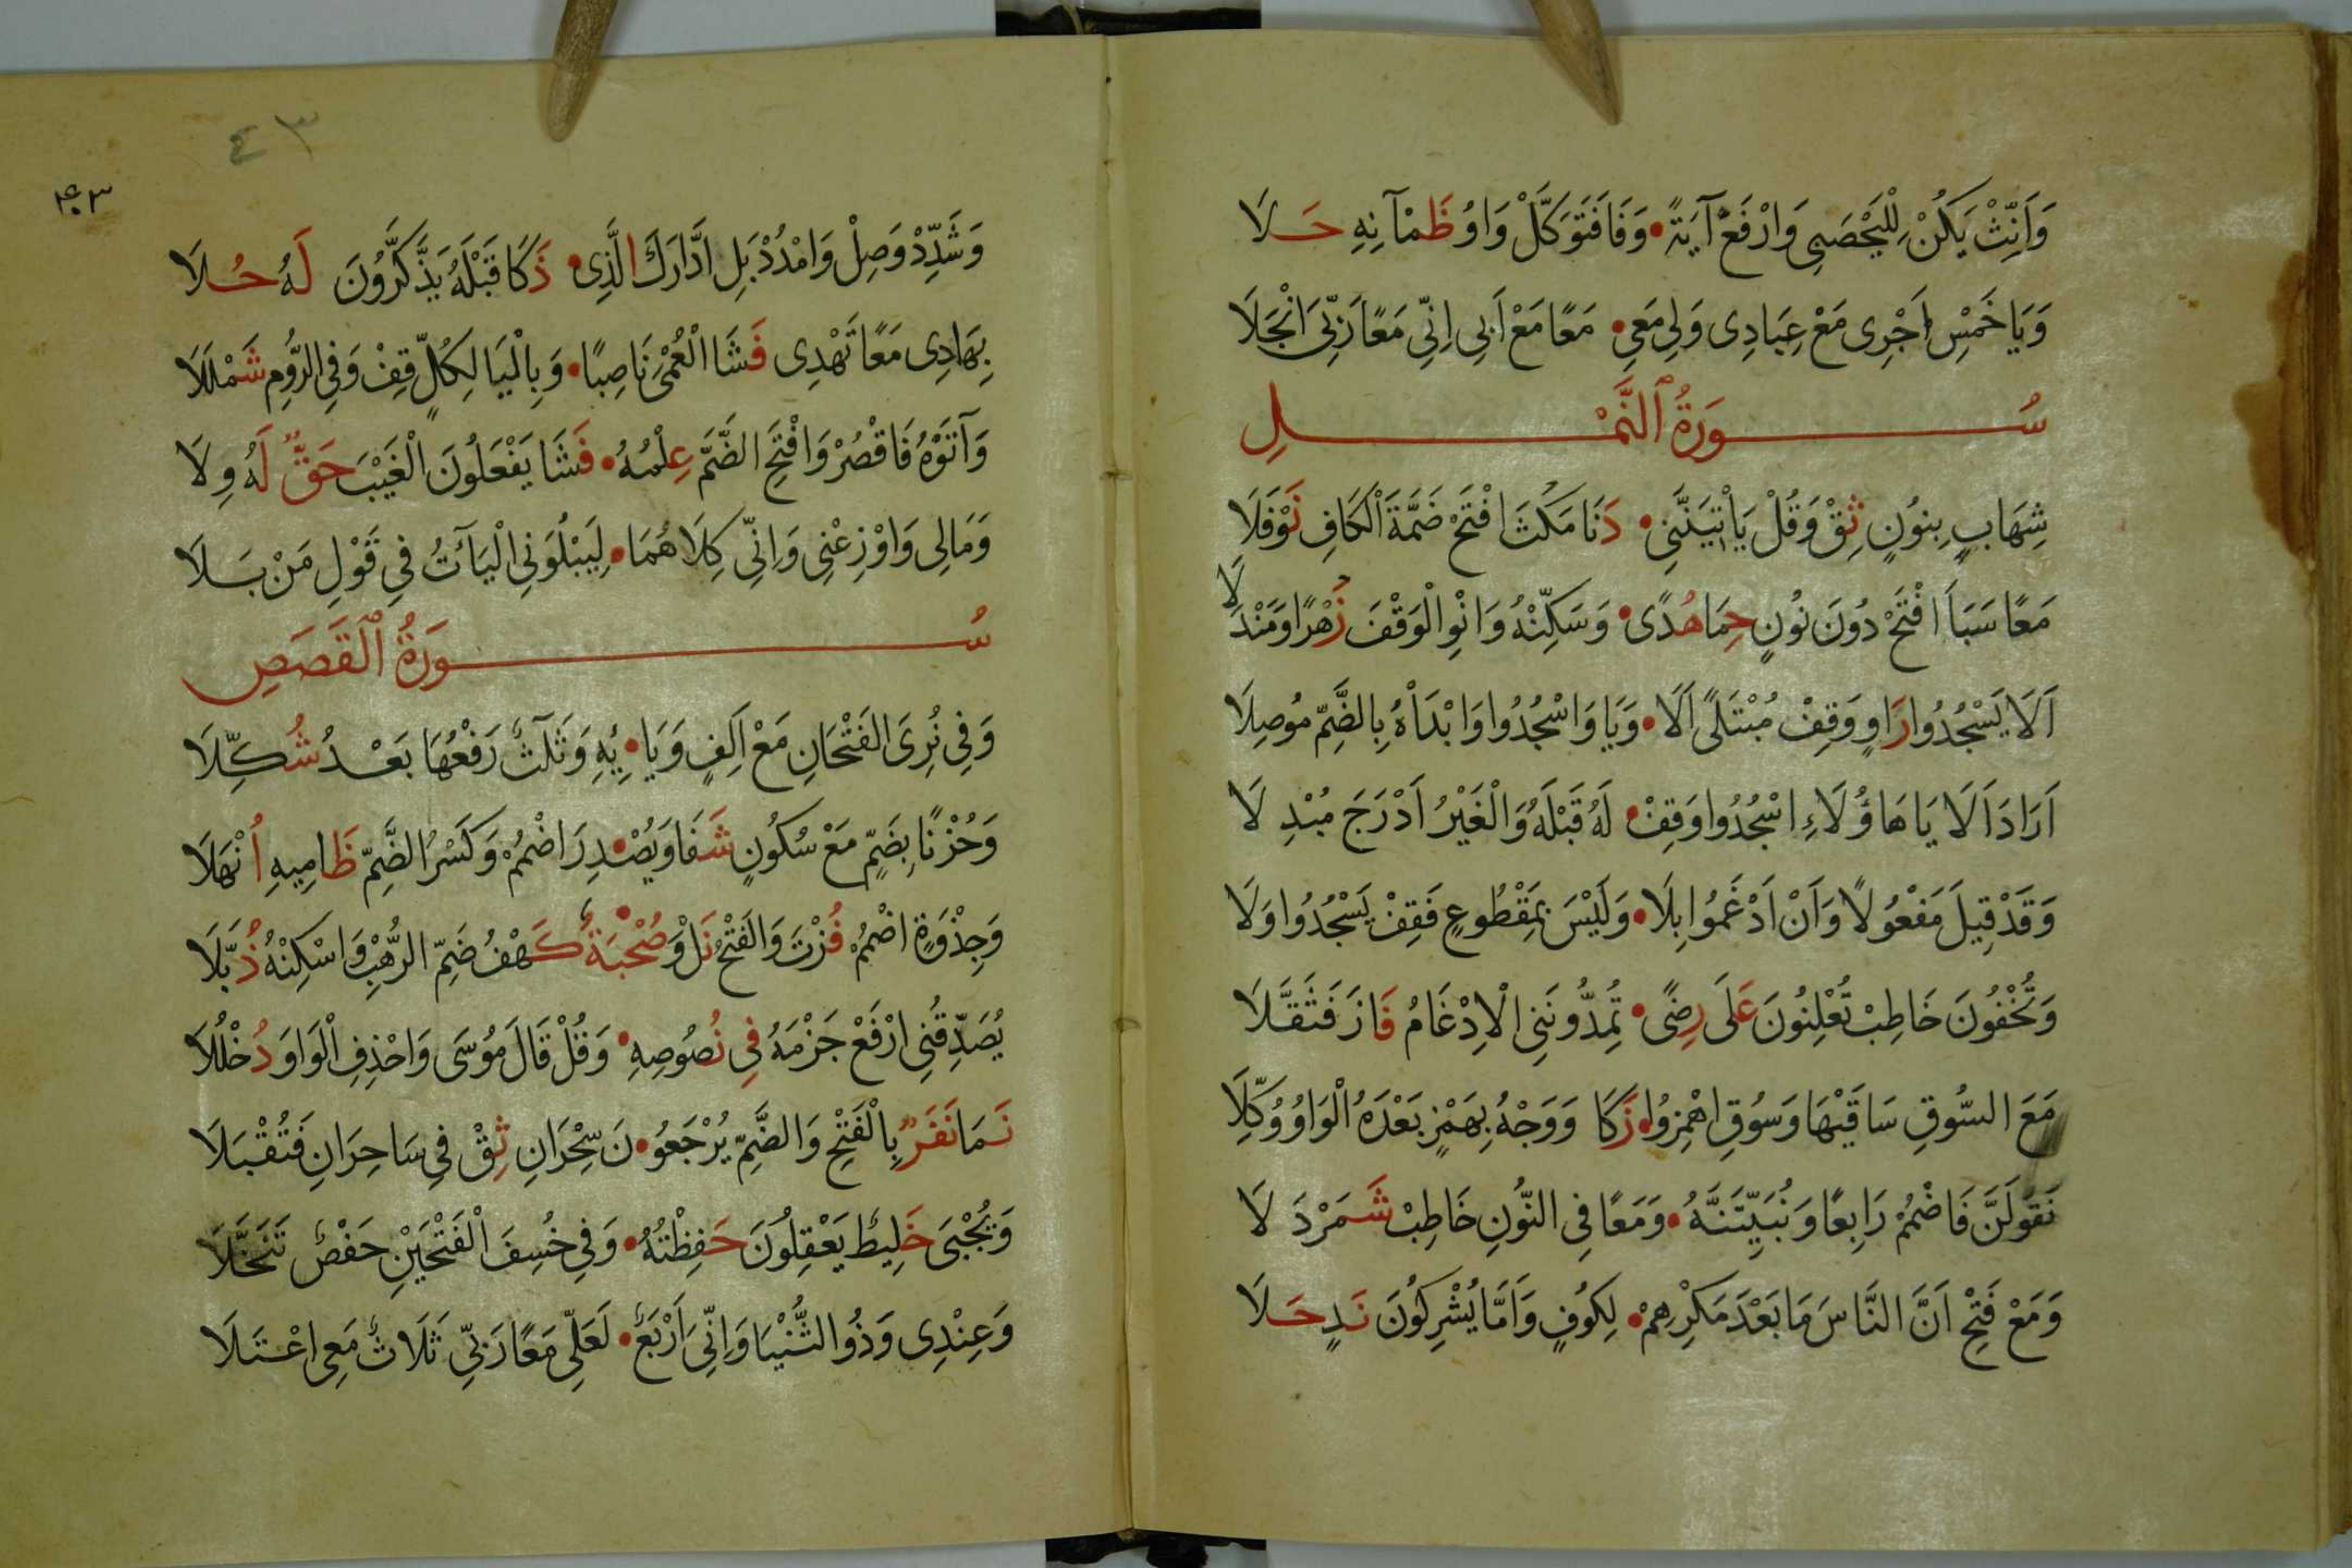 وَاَنِّثْ يَكُنْ لِلْيَحْصَبِى وَارْفَعْ آيَةً • وَفَا فَتَوَكَّلْ وَاوُ ظَمْآنِهِ حَلَا
وَيَا خَمْسِ اَجْرِى مَعْ عِبَادِى وَلِى مَعِى • مَعًا مَعْ اَبِى اِنِّى مَعًا رَبِّىَ انْجَلَا
سُورَةُ ٱلنَّمْلِ
شِهَابٍ بِنُونٍ ثِقْ وَقُلْ يَأْتِيَنَّنِى • دَنَا مَكُثَ افْتَحْ ضَمَّةَ الْكَافِ نَوْفَلَا
مَعًا سَبَاَ افْتَحْ دُونَ نُونٍ حِمَا هُدًى • وَسَكِّنْهُ وَانْوِ الْوَقْفَ زُهْرًا وَمَنْدَلَا
اَلَا يَسْجُدُوا رَاوٍ وَقِفْ مُبْتَلًى اَلَا • وَيَا وَاسْجُدُوا وَابْدَاْهُ بِالضَّمِّ مُوصِلَا
اَرَادَ اَلَا يَا هَاؤُلَاءِ اسْجُدُوا وَقِفْ • لَهُ قَبْلَهُ وَالْغَيْرُ اَدْرَجَ مُبْدِلَا
وَقَدْ قِيلَ مَفْعُولًا وَاَنْ اَدْغَمُوا بِلَا • وَلَيْسَ بِمَقْطُوعٍ فَقِفْ يَسْجُدُوا وَلَا
وَتُخْفُونَ خَاطِبْ تُعْلِنُونَ عَلَى رِضًى • تُمِدُّونَنِى الْاِدْغَامُ فَازَ فَثَقَّلَا
مَعَ السُّوقِ سَاقَيْهَا وَسُوقِ اهْمِزُوا • زَكَا وَوَجْهُ بِهَمْزٍ بَعْدَهُ الْوَاوُ وُكِّلَا
نَقُولَنَّ فَاضْمُمْ رَابِعًا وَنُبَيِّتَنَّهُ • وَمَعًا فِى النُّونِ خَاطِبْ شَمَرْدَلَا
وَمَعْ فَتْحِ اَنَّ النَّاسَ مَا بَعْدَ مَكْرِهِمْ • لِكُوفٍ وَاَمَّا يُشْرِكُونَ نَدٍ حَلَا
٤٣
۴۰۳
وَشَدِّدْ وَصِلْ وَامْدُدْ بَلِ ادَّارَكَ الَّذِى • ذَكَا قَبْلَهُ يَذَّكَّرُونَ لَهُ حُلَا
بِهَادِى مَعًا تَهْدِى فَشَا الْعُمْىَ نَاصِبًا • وَبِالْيَا لِكُلٍّ قِفْ وَفِى الرُّومِ شَمْلَلَا
وَآتَوْهُ فَاقْصُرْ وَافْتَحِ الضَّمَّ عِلْمُهُ • فَشَا يَفْعَلُونَ الْغَيْبَ حَقٌّ لَهُ وِلَا
وَمَالِى وَاَوْزِعْنِى وَاِنِّى كِلَاهُمَا • لِيَبْلُوَنِى الْيَآتُ فِى قَوْلِ مَنْ بَلَا
سُورَةُ ٱلْقَصَصِ
وَفِى نُرِىَ الْفَتْحَانِ مَعْ اَلِفٍ وَيَا • ئِهِ وَثَلٰثٌ رَفْعُهَا بَعْدُ شُكِّلَا
وَحُزْنًا بِضَمٍّ مَعْ سُكُونٍ شَفَا وَيُصْ • دِرَ اضْمُمْ وَكَسْرُ الضَّمِّ ظَامِيهِ اُنْهَلَا
وَجِذْوَةٍ اضْمُمْ فُزْتَ وَالْفَتْحُ نَلْ وَصُحْبَةٌ • كَهْفُ ضَمِّ الرُّهْبِ وَاسْكِنْهُ ذُبَّلَا
يُصَدِّقُنِى ارْفَعْ جَزْمَهُ فِى نُصُوصِهِ • وَقُلْ قَالَ مُوسَى وَاحْذِفِ الْوَاوَ دُخْلُلَا
نَمَا نَفَرٌ بِالْفَتْحِ وَالضَّمِّ يُرْجَعُو • نَ سِحْرَانِ ثِقْ فِى سَاحِرَانِ فَتُقْبَلَا
وَيُجْبَى خَلِيطٌ يَعْقِلُونَ حَفِظْتُهُ • وَفِى خُسِفَ الْفَتْحَيْنِ حَفْصٌ تَنَخَّلَا
وَعِنْدِى وَذُو الثُّنْيَا وَاِنِّى اَرْبَعٌ • لَعَلِّى مَعًا رَبِّى ثَلَاثٌ مَعِى اعْتَلَا